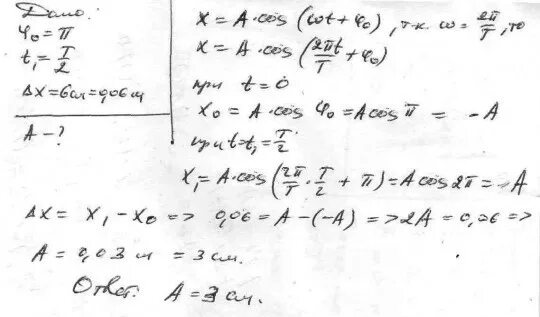 Дано:
φ₀ = π
t₁ = T/2
Δx = 6см = 0,06 м
A - ?
x = A·cos (ωt + φ₀), т.к. ω = 2π/T, то
x = A·cos (2πt/T + φ₀)
при t = 0
x₀ = A·cos φ₀ = A cos π = -A
при t = t₁ = T/2
x₁ = A·cos (2π/T · T/2 + π) = A cos 2π = -A
Δx = x₁ - x₀ => 0,06 = A - (-A) => 2A = 0,06 =>
A = 0,03 м = 3 см.
Ответ: A = 3 см.